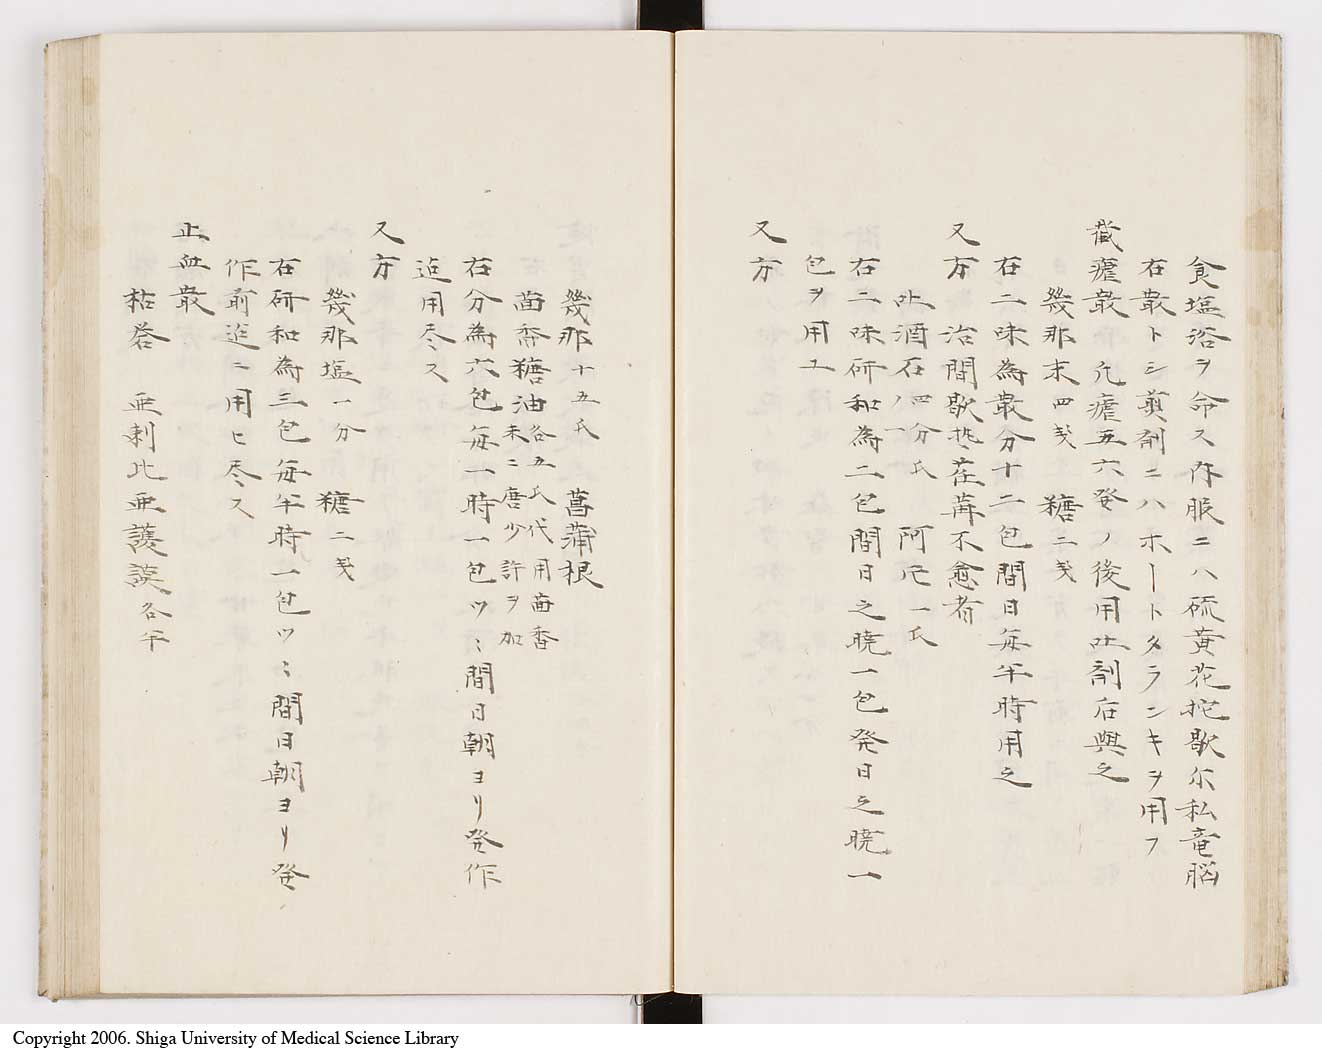 食塩浴ヲ命ス内服ニハ硫黄花挖歇尓私竜脳
右散トシ煎剤ニハホートタランキヲ用フ
截瘧散 凡瘧五六発ノ後用吐剤后與之
幾那末四戔 糖二戔
右二味為散分十二包間日毎半時用之
又方 治間歇热荏苒不愈者
吐酒石四分氏八一 阿片一氏
右二味研和為二包間日之暁一包発日之暁一
包ヲ用ユ
又方
幾那十五氏 菖蒲根
茴香糖油各五氏代用茴香末ニ唐少許ヲ加
右分為六包毎一時一包ツヽ間日朝ヨリ発作
迠用尽ス
又方
幾那塩一分 糖二戔
右研和為三包毎半時一包ツヽ間日朝ヨリ発
作前迠ニ用ヒ尽ス
止血散
枯礬 亜剌比亜護謨各半
Copyright 2006. Shiga University of Medical Science Library